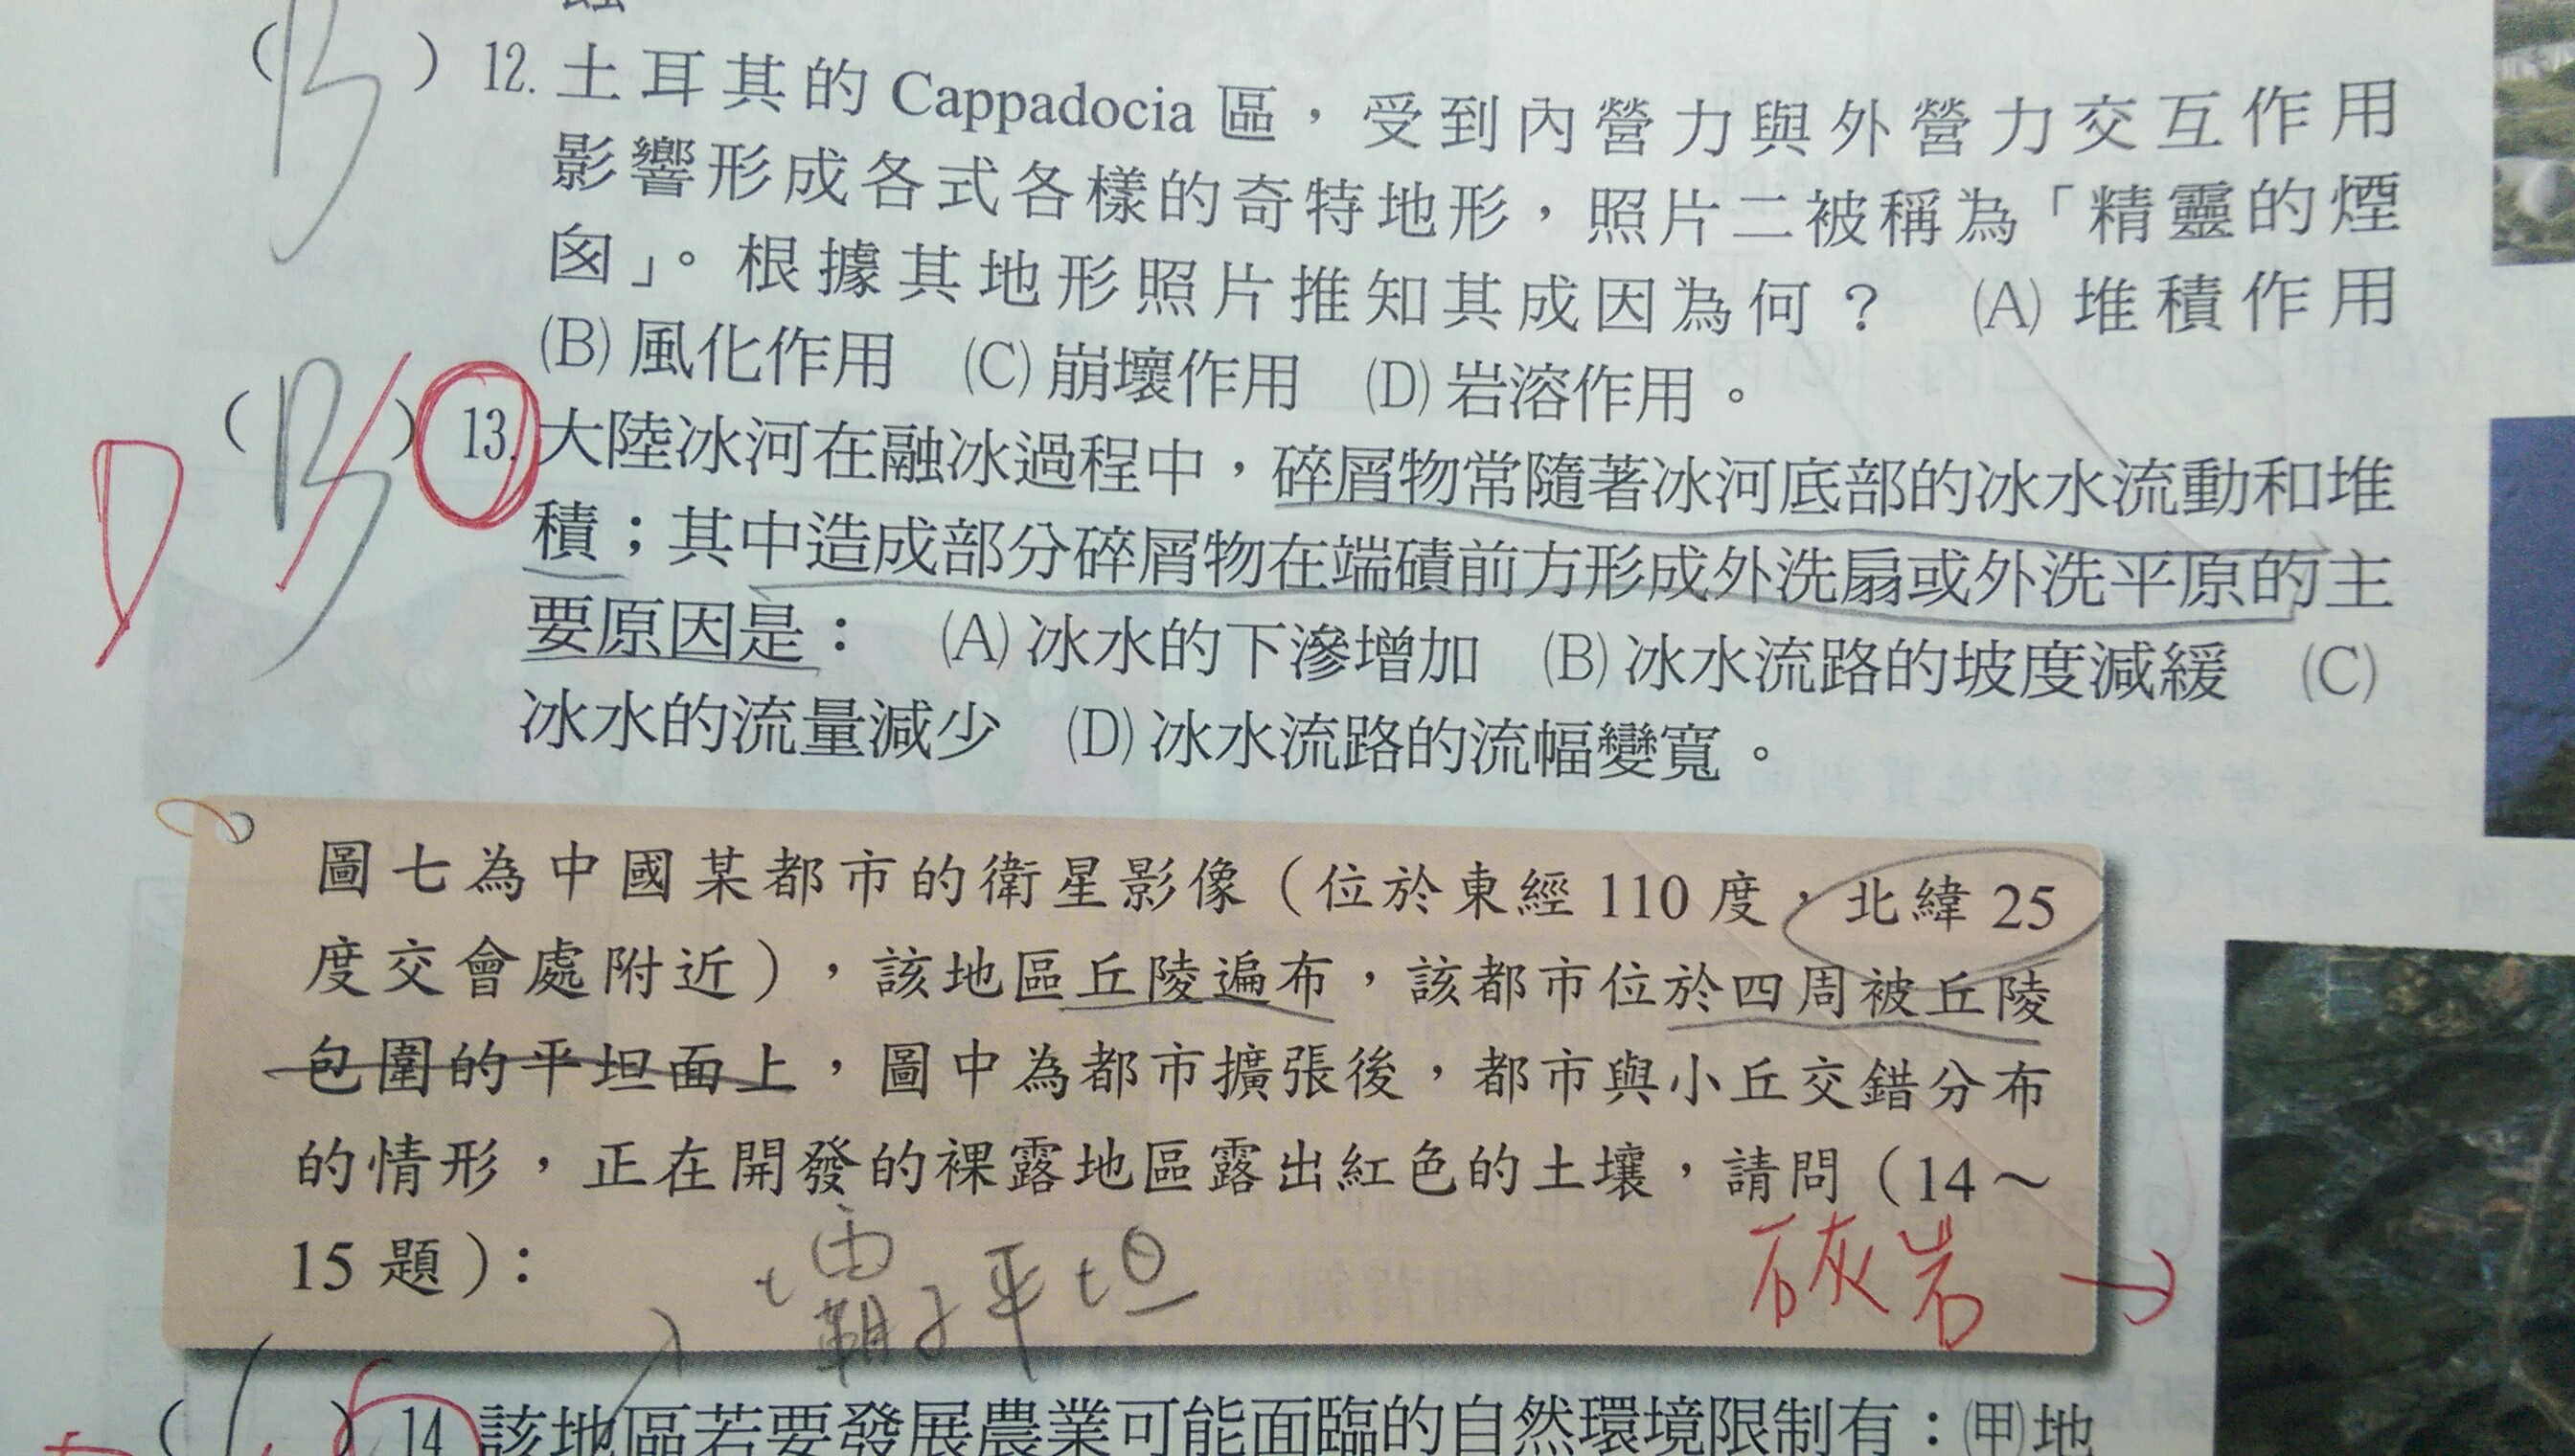 (B) 12. 土耳其的 Cappadocia 區，受到內營力與外營力交互作用
影響形成各式各樣的奇特地形，照片二被稱為「精靈的煙
囪」。根據其地形照片推知其成因為何？ (A) 堆積作用
(B) 風化作用 (C) 崩壞作用 (D) 岩溶作用。
D (B) 13. 大陸冰河在融冰過程中，碎屑物常隨著冰河底部的冰水流動和堆
積；其中造成部分碎屑物在端磧前方形成外洗扇或外洗平原的主
要原因是： (A) 冰水的下滲增加 (B) 冰水流路的坡度減緩 (C)
冰水的流量減少 (D) 冰水流路的流幅變寬。
圖七為中國某都市的衛星影像（位於東經 110 度，北緯 25
度交會處附近），該地區丘陵遍布，該都市位於四周被丘陵
包圍的平坦面上，圖中為都市擴張後，都市與小丘交錯分布
的情形，正在開發的裸露地區露出紅色的土壤，請問（14～
15 題）：
壩子平坦
石灰岩
14 該地區若要發展農業可能面臨的自然環境限制有：(甲)地